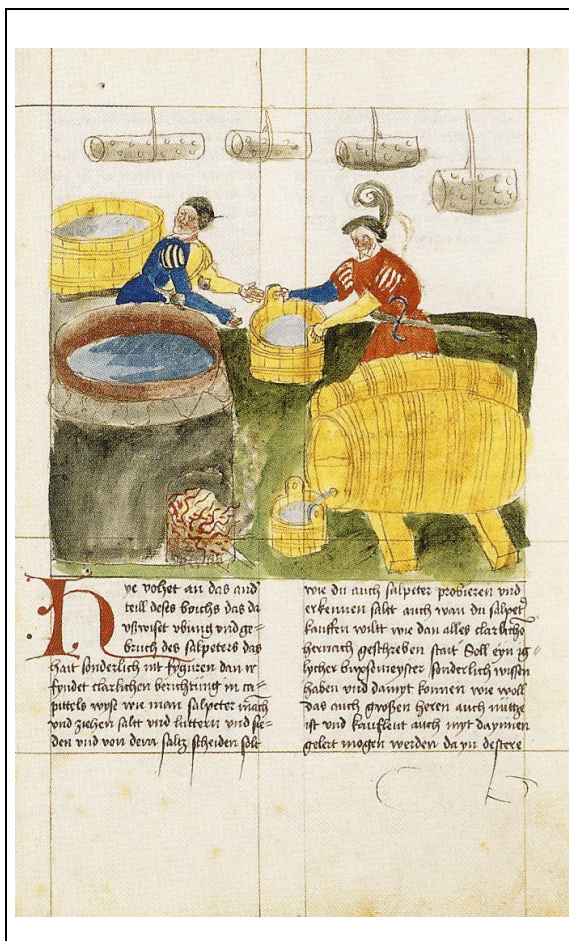 Hye vohet an das and
teill deses buochs das da
vßwiset vbung vnd ge=
bruch des salpeters das
hait sonderlich mit fyguren dan ir
fyndet clarlichen berichtung in ca=
pittels wyse wie man salpeter mach
vnd ziehen salt vnd luttern vnd sie=
den vnd von dem saltz scheiden solt
wie du auch salpeter probieren vnd
erkennen salt auch wan du salpet
kauffen wiltt wie dan alles clarliche
hernach geschreben stait Soll eyn ig=
lycher buyßemeyster sonderlich wissen
haben vnd damyt konnen wie woll
das auch großen heren auch nuttze
ist vnd kaufleut auch myt daynnen
gelert mogen werden da yn destere